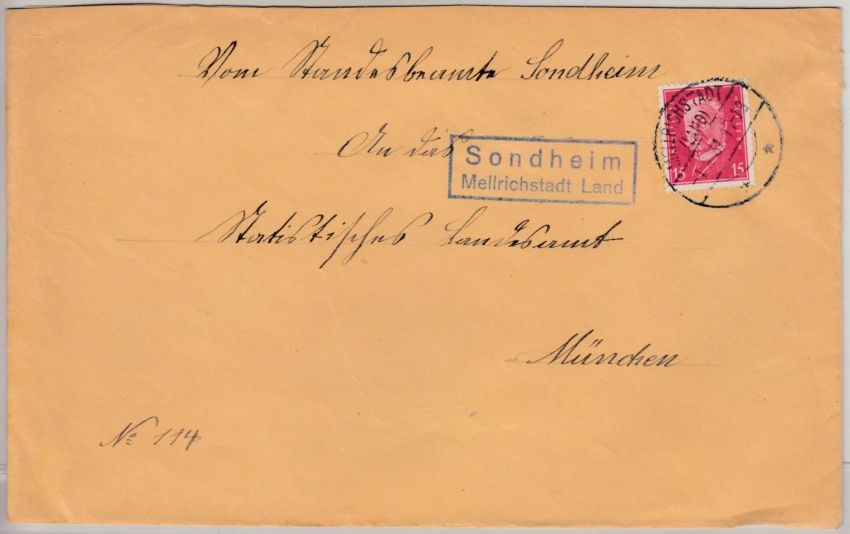 Vom Standesbeamte Sondheim
An das
Sondheim
Mellrichstadt Land
Statistisches Landesamt
München
No 114
MELLRICHSTADT
(LAND)
15 15